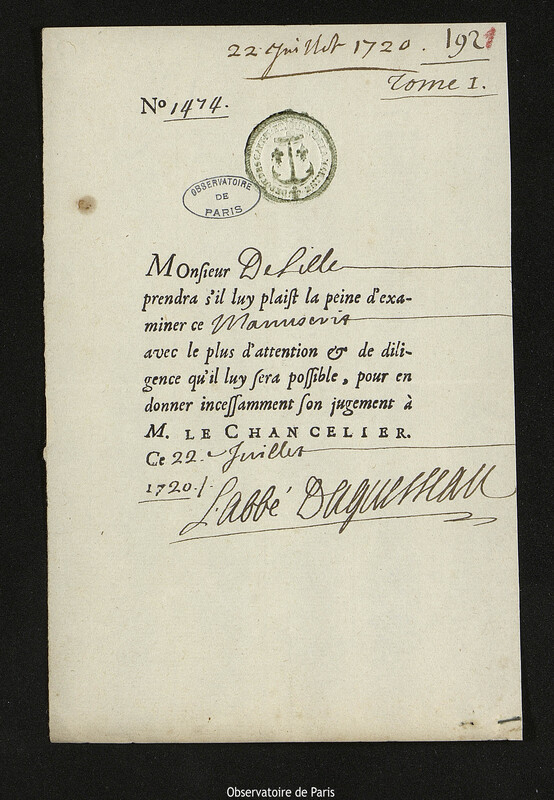 22. Juillet 1720. 192
Tome I.
Nº 1474.
OBSERVATOIRE
DE
PARIS
MOnſieur DeLille
prendra s'il luy plaiſt la peine d'exa-
miner ce Manuscrit
avec le plus d'attention & de dili-
gence qu'il luy ſera poſſible, pour en
donner inceſſamment ſon jugement à
M. LE CHANCELIER.
Ce 22. Juillet
1720./.
L'abbé Daguesseau
Observatoire de Paris